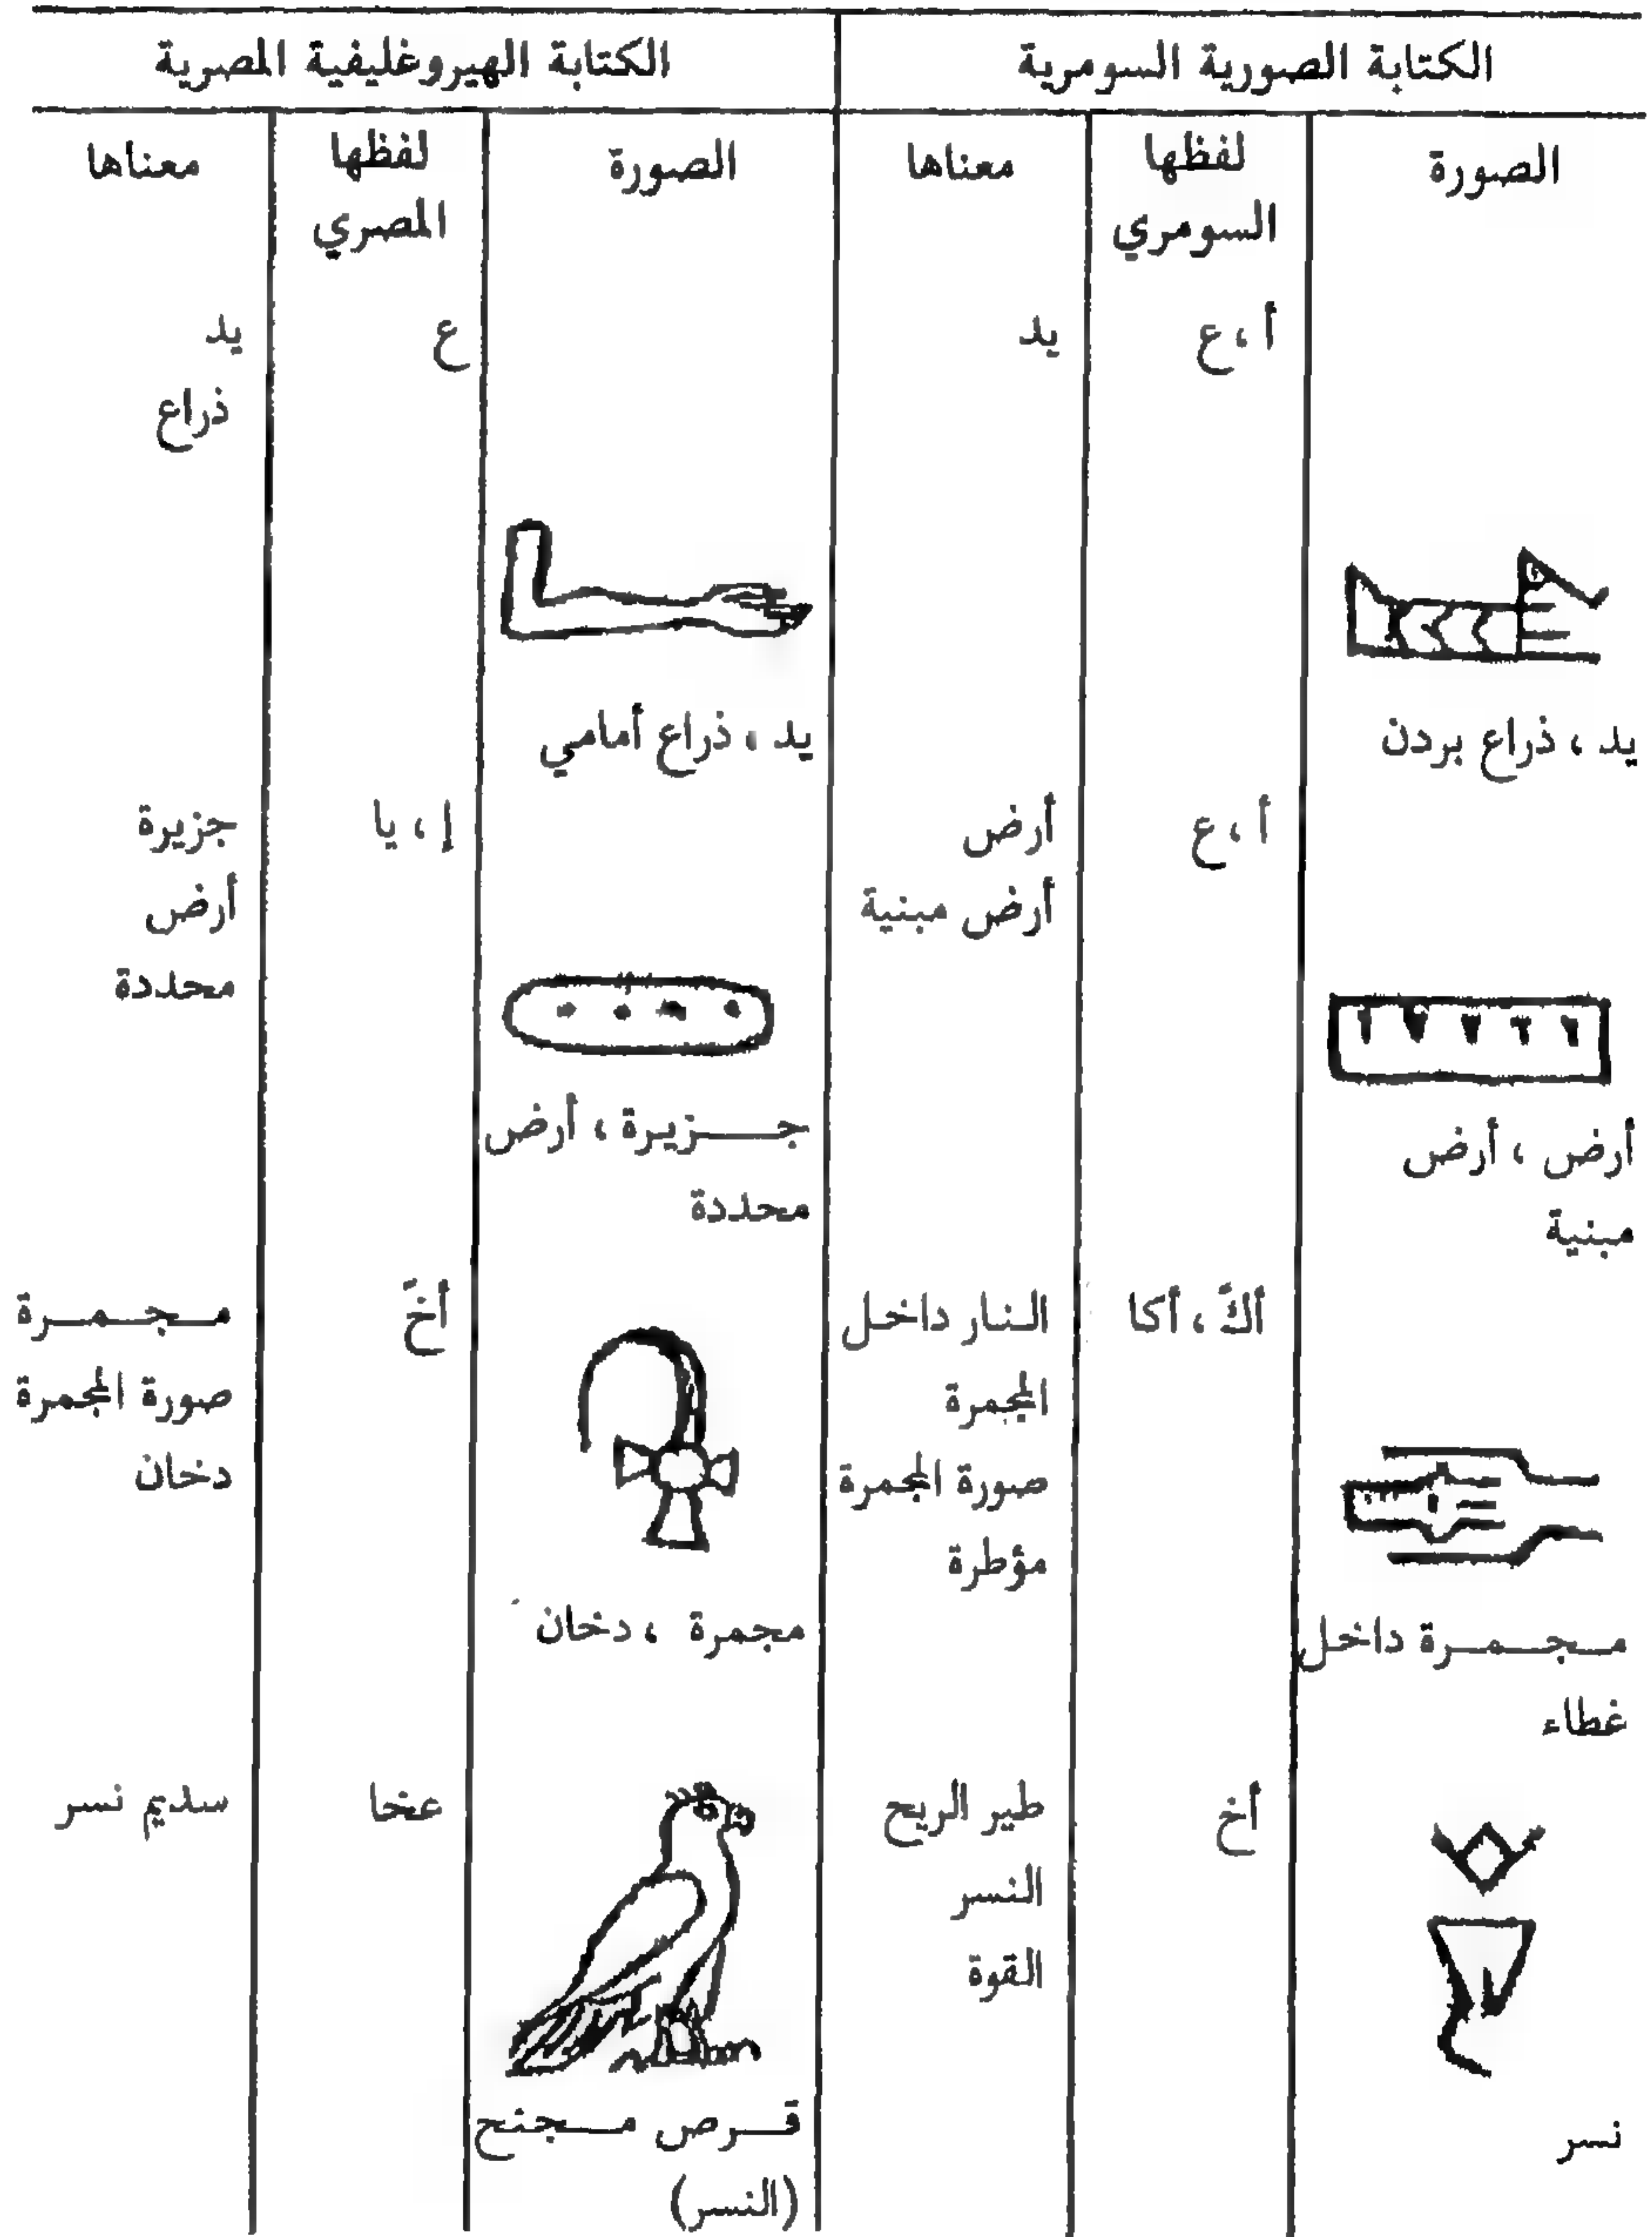 الكتابة الصورية السومرية
الكتابة الهيروغليفية المصرية
الصورة
لفظها
السومري
معناها
الصورة
لفظها
المصري
معناها
يد ، ذراع بردن
أ ، ع
يد
يد ، ذراع أمامي
ع
يد
ذراع
أرض ، أرض
مبنية
أ ، ع
أرض
أرض مبنية
جزيرة ، أرض
محددة
إ ، يا
جزيرة
أرض
محددة
مجمرة داخل
غطاء
أكّ ، أكا
النار داخل
المجمرة
صورة المجمرة
مؤطرة
مجمرة ، دخان
أخّ
مجمرة
صورة المجمرة
دخان
نسر
أخ
طير الريح
النسر
القوة
قرص مجنح
(النسر)
عخا
سديم نسر